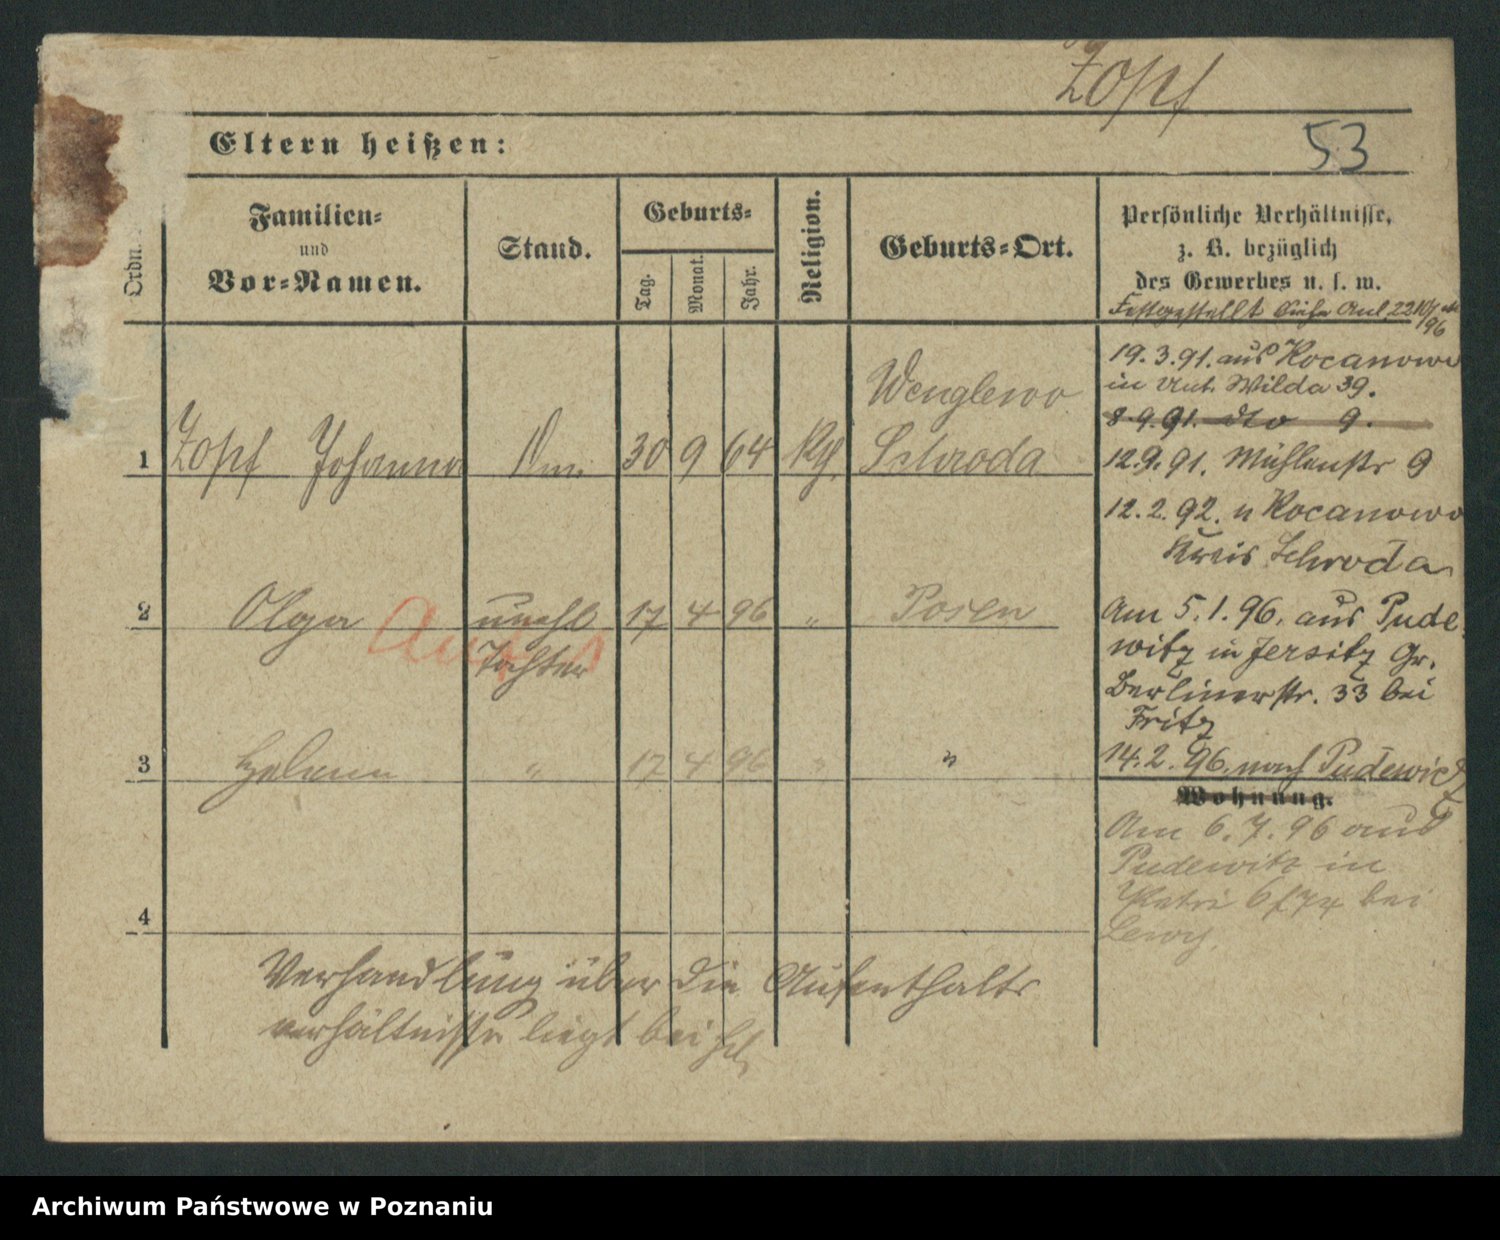 Zopf
53
Eltern heißen:
Ordn.
Familien-
und
Vor-Namen.
Stand.
Geburts-
Tag.
Monat.
Jahr.
Religion.
Geburts-Ort.
Persönliche Verhältnisse,
z. B. bezüglich
des Gewerbes u. s. w.
Festgestellt siehe Anl. 22
96
19.3.91. aus Kocanowo
in Wilda 39.
8.9.91. dto 9.
Wenglewo
1 Zopf Johanna 30 9 64 Schroda
12.9.91. Mühlenstr 9
12.2.92. n Kocanowo
Kreis Schroda
2 Olga unehl 17 4 96 " Posen
Tochter
Am 5.1.96. aus Pude
witz in Jersitz Gr.
Berlinerstr. 33 bei
Fritz
3 " 17 4 96 " "
14.2.96. nach Pudewitz
Wohnung.
Am 6.7.96 aus
Pudewitz in
bei
4
Verhandlung über die Aufenthalts
verhältnisse liegt bei
Archiwum Państwowe w Poznaniu